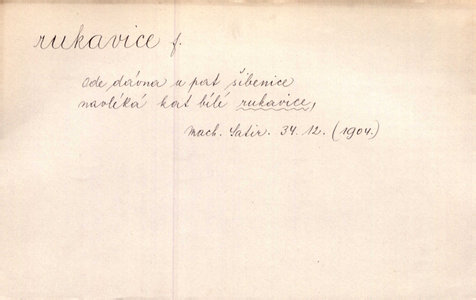 rukavice f.
Ode dávna u pat šibenice
navléká kat bílé rukavice,
Mach. Satir. 34. 12. (1904.)